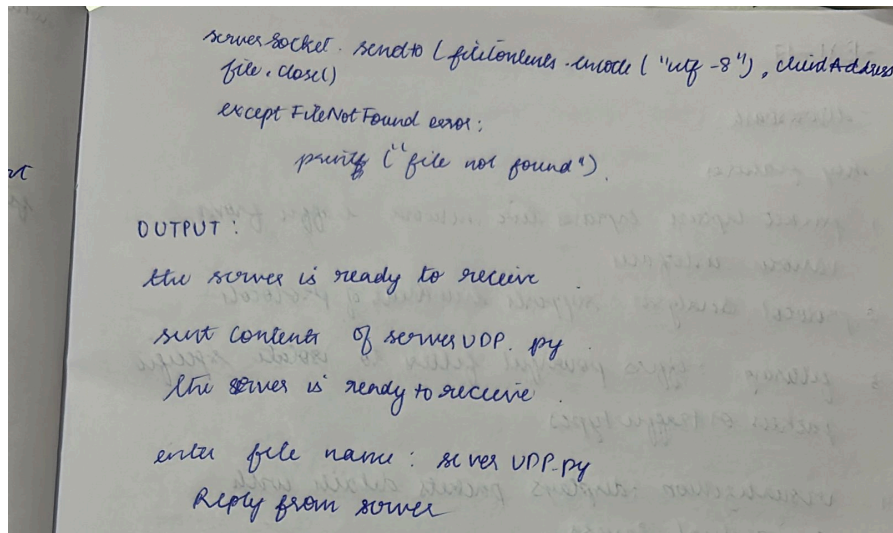 serversocket. sendto (filecontents.encode ("utf-8"), clientAddress
file.close()
except FileNotFound error:
print ("file not found").
OUTPUT:
the server is ready to receive
sent contents of serverUDP. py
the server is ready to receive
enter file name: server UDP.py
Reply from server